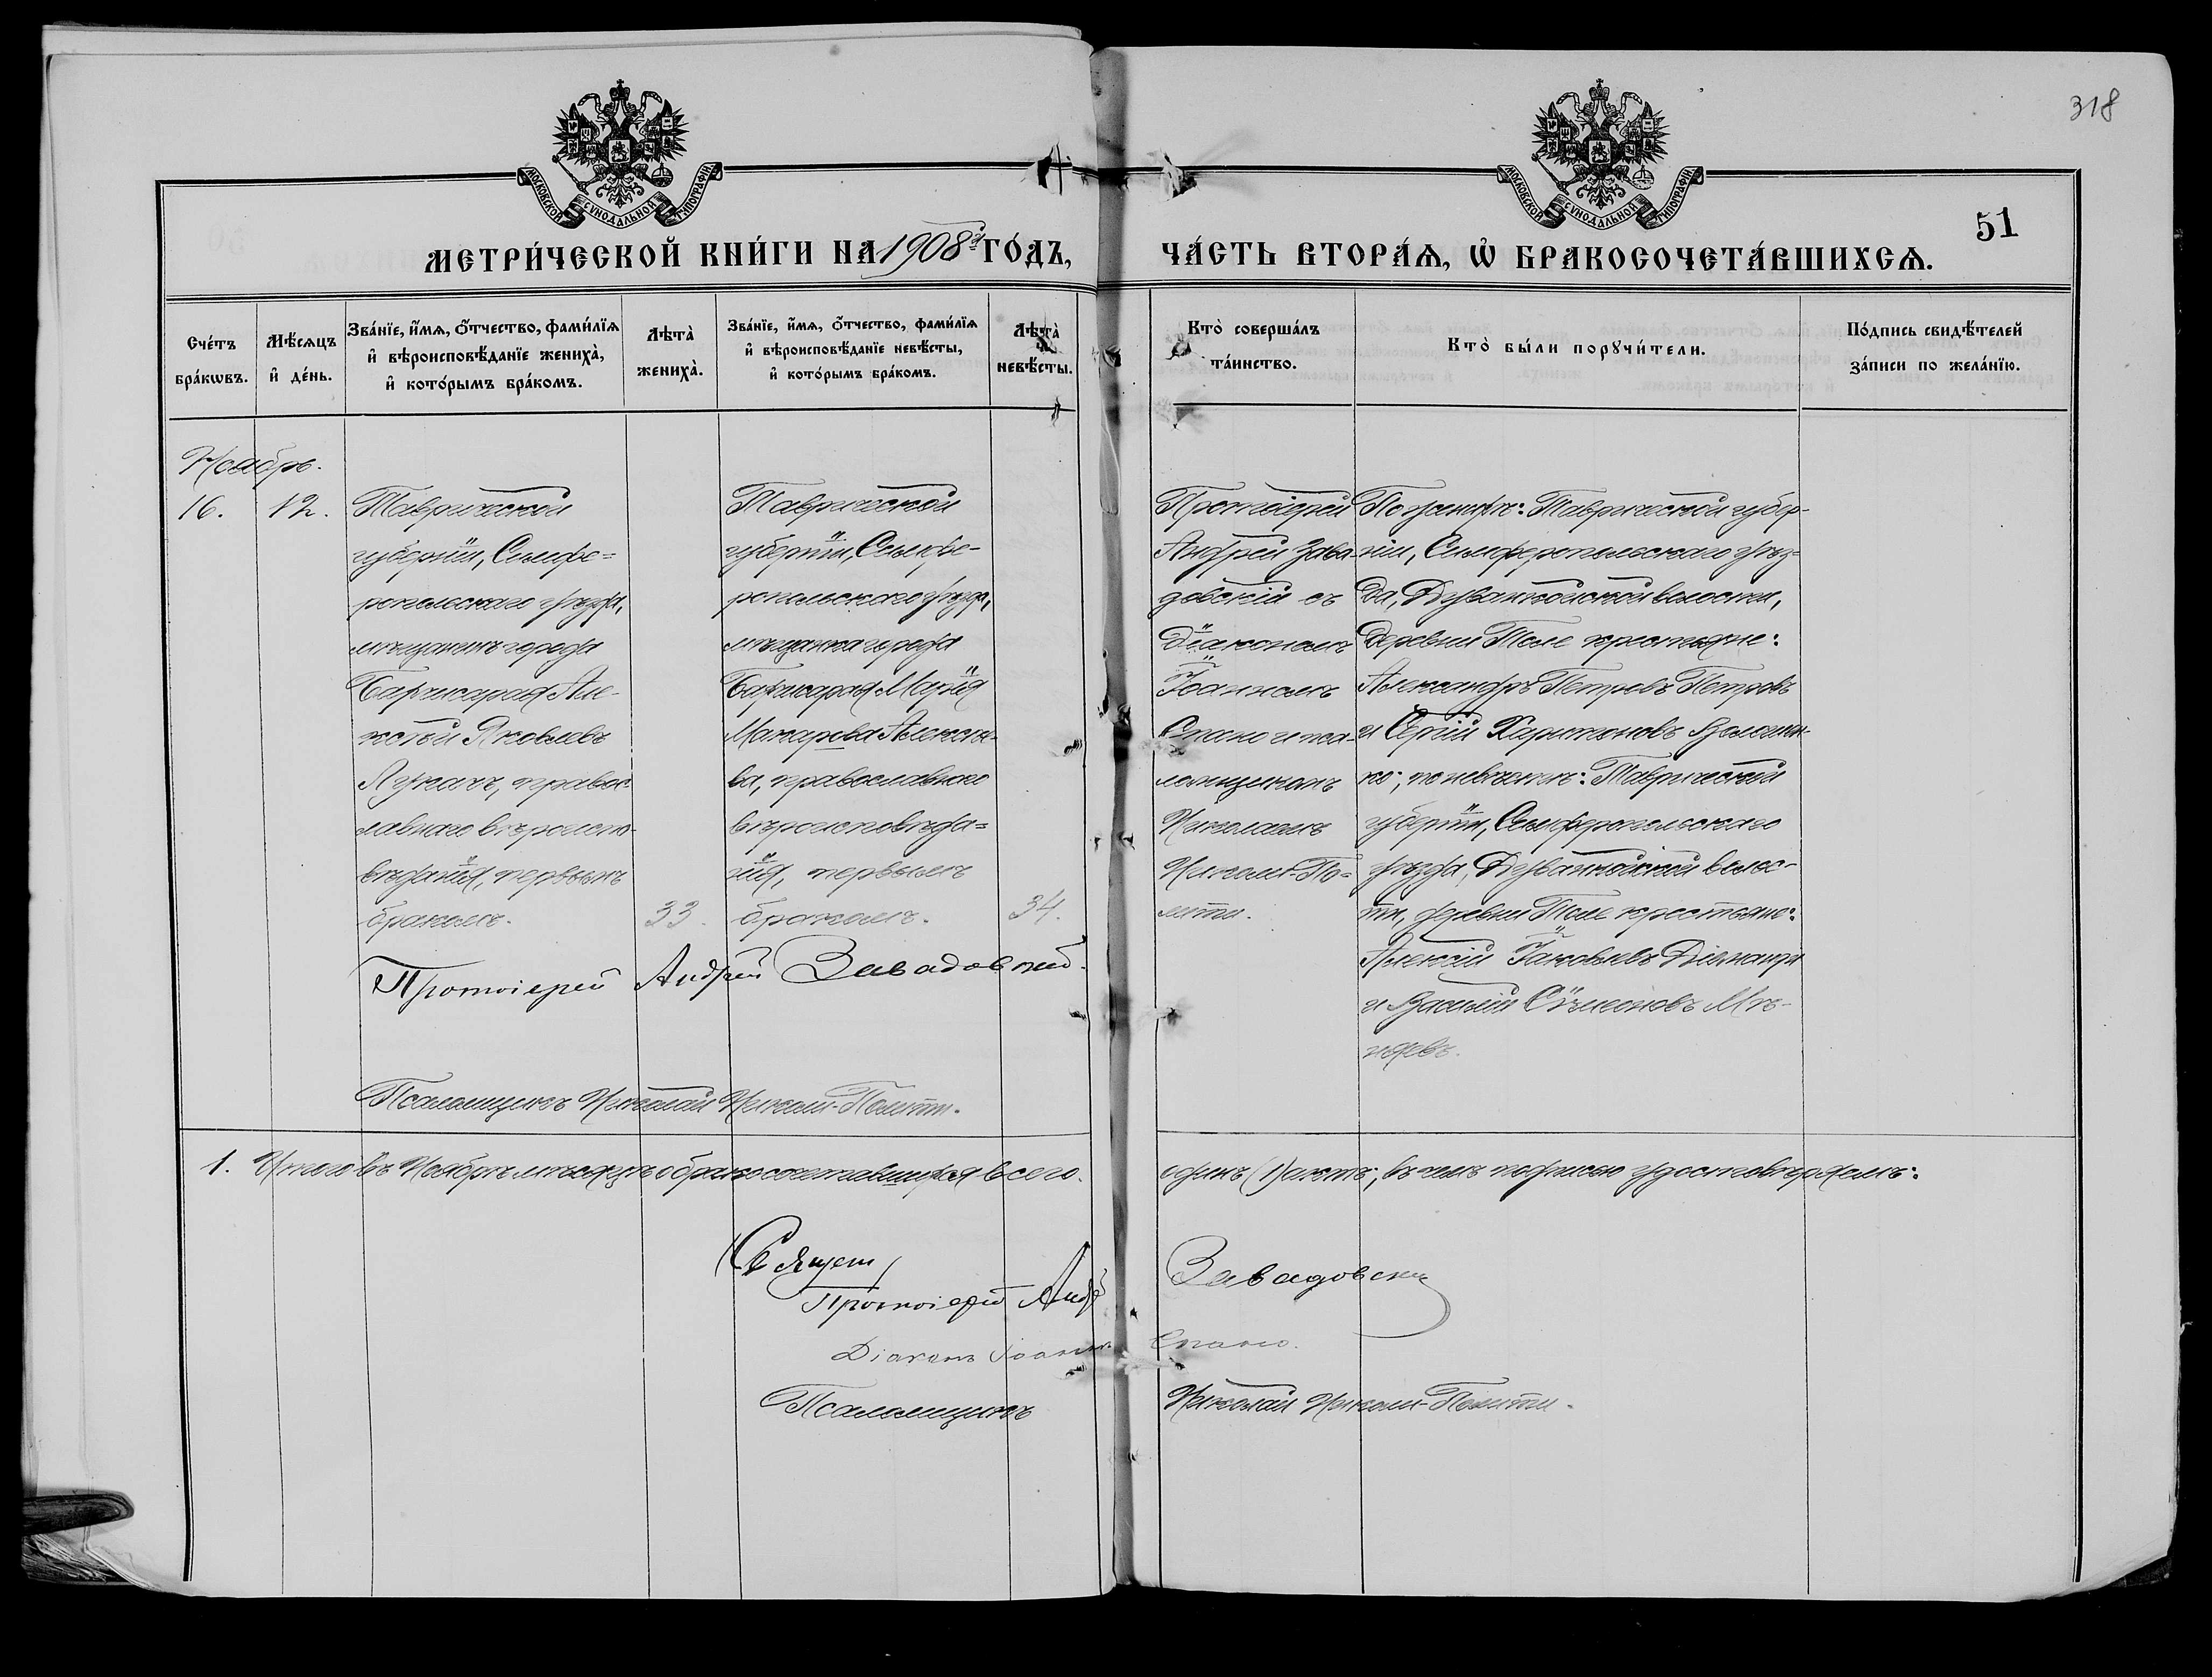 318
МОСКОВСКОЙ СѴНОДАЛЬНОЙ ТИПОГРАФІИ
МОСКОВСКОЙ СѴНОДАЛЬНОЙ ТИПОГРАФІИ
51
МЕТРИ́ЧЕСКОЙ КНИ́ГИ НА 1908й ГО́ДЪ,
ЧА́СТЬ ВТОРА́Ѧ, Ѡ҆ БРАКОСОЧЕТА́ВШИХСѦ.
Сче́тъ
бра́кѡвъ.
Мѣ́сѧцъ
и҆ де́нь.
Зва́нїе, и҆́мѧ, ѻ҆́тчество, фами́лїѧ
и҆ вѣроисповѣ́данїе женихà,
и҆ кото́рымъ бра́комъ.
Лѣтà
женихà.
Зва́нїе, и҆́мѧ, ѻ҆́тчество, фами́лїѧ
и҆ вѣроисповѣ́данїе невѣ́сты,
и҆ кото́рымъ бра́комъ.
Лѣтà
невѣ́сты.
Ктò соверша́лъ
та́инство.
Ктò бы́ли порꙋчи́тели.
По́дпись свидѣ́телей
за́писи по жела́нїю.
Ноябрь.
16.
12.
Таврической
губерніи, Симфе=
ропольскаго уѣзда,
мѣщанинъ города
Бахчисарая Але-
ксѣй Яковлевъ
Лукачъ, правос-
лавнаго вѣроиспо-
вѣданія, первымъ
бракомъ.
33.
Таврической
губерніи, Симфе-
ропольскаго уѣзда,
мѣщанка города
Бахчисарая Марія
Макарова Алексѣе-
ва, православнаго
вѣроисповѣда=
нія, первымъ
бракомъ.
34.
Протоіерей
Андрей Зава-
довскій съ
Діакономъ
Іоанномъ
Спано и пса-
ломщикомъ
Николаемъ
Николи-По=
лити.
По женихѣ: Таврической губер-
ніи, Симферопольскаго уѣз-
да, Дуванкойской волости,
деревни Толе крестьяне:
Александръ Петровъ Петровъ
и Сергій Харитоновъ
по невѣстѣ: Таврической
губерніи, Симферопольскаго
уѣзда, Дуванкойской волос-
ти, деревни Толе крестьяне:
Алексій Іаковлевъ Діаманди
и Василій Сѵмеоновъ
Протоіерей Андрей Завадовскій.
Псаломщикъ Николай Николи-Полити.
1. Итого въ Ноябрѣ мѣсяцѣ бракосочетавшихся всего
одинъ (1) актъ, въ чемъ подписью удостовѣряемъ:
Священ
Протоіерей Андр Завадовскій
Діаконъ Іоаннъ Спано.
Псаломщикъ Николай Николи-Полити.